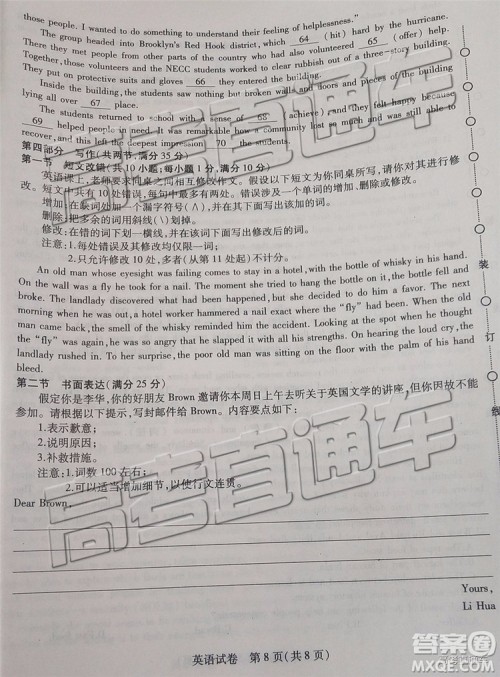 those people. I wanted to do something to understand their feeling of helplessness."
The group headed into Brooklyn's Red Hook district, which 64 (hit) hard by the hurricane.
There they met some from other parts of the country who had also volunteered 65 (offer) help.
Together, those volunteers and the NECC students worked to clear rubbish out of a three-story building.
They put on protective suits and gloves 66 they entered the building.
Inside the building, the students saw nothing but broken walls and doors and pieces of the building
lying all over 67 place.
The students returned to school with a sense of 68 (achieve), and they felt happy that they
69 helped people in need. It was remarkable how a community hist so much and started to
recover, and this left the deepest impression 70 the students.
第四部分 写作(共两节,满分35分)
第一节 短文改错(共10小题;每小题1分,满分10分)
英语课上,老师要求同桌之间相互修改作文。假设以下短文为你同桌所写,请你修
改。短文中共有10处错误,每句中最多有两处。每处错误仅涉及一个单词的增加、删除或修改。
增加:在缺词处加一个漏字符号(∧),并在该词下面写出该加的词。
删除:把多余的词用斜线(\)划掉。
修改:在错的词下划一横线,并在该词下面写出修改后的词。
注意:1.每处错误及其修改均仅限一词。
2.只允许修改10处,多者(从第11处起)不计分。
An old man whose eyesight was failing comes to stay in a hotel, with the bottle of whisky in his hand.
On the wall was a fly he took for a nail. The moment she tried to hang the bottle on it, the bottle fell and
broke. The landlady discovered what had been happened, but she decided to him a favor. The next
morning when he was out, a hotel worker hammered a nail exactly where the "fly" had been. Now the old
man came back, the smell in the room reminded him of the accident. Looking at the spot when he thought
the "fly" was again, he hit it with all his strengths. On hearing the loud cry, the
landlady rushed in. To her surprise, the poor old man was sitting on the floor with the palm of his hand
bleed.
第二节 书面表达(满分25分)
假定你是李华,你的好朋友Brown邀请你本周日上午去听关于英国文学的讲座,但你因故不能
参加。请根据以下提示,写封邮件给Brown。
1.表示歉意;
2.说明原因;
3.补救措施。
注意:1.词数100左右;
2.可以适当增加细节,以使行文连贯。
Dear Brown,
Yours,
Li Hua
英语试卷 第8页(共8页)
装
订
线
高考直通车
高考直通车
答案圈
MXQE.COM